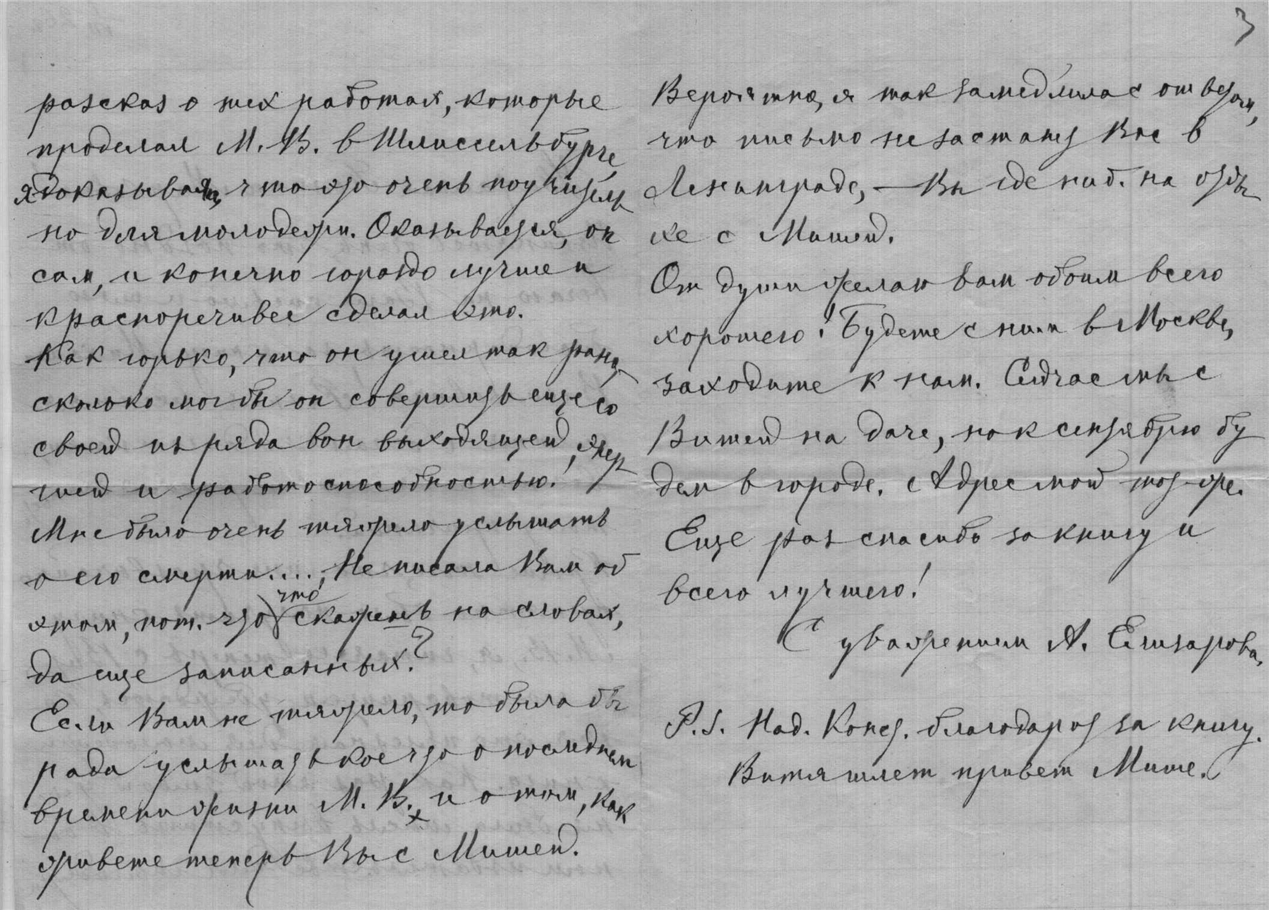 разсказ о тех работах, которые
проделал М. В. в Шлиссельбурге,
я доказывала, что это очень поучитель
но для молодежи. Оказывается, он
сам, и конечно гораздо лучше и
краспоречивее сделал это.
Как горько, что он ушел так рано,
сколько мог бы он совершить еще со
своей из ряда вон выходящей, энер
гией и работоспособностью!
Мне было очень тяжело услышать
о его смерти...., Не писала Вам об
этом, пот. что что скажешь на словах,
да еще записанных?
Если Вам не тяжело, то была бы
рада услышать кое что о последнем
времени жизни М. В. и о том, как
живете теперь Вы с Мишей.
3
Вероятно, я так замедлила с ответом,
что письмо не застанет Вас в
Ленинграде, — Вы где ниб. на отды
хе с Мишей.
От души желаю вам обоим всего
хорошего! Будете с ним в Москве,
заходите к нам. Сейчас мы с
Витей на даче, но к сентябрю бу
дем в городе. Адрес мой тот-же.
Еще раз спасибо за книгу и
всего лучшего!
С уважением А. Елизарова.
P.S. Над. Конст. благодарит за книгу.
Витя шлет привет Мише.